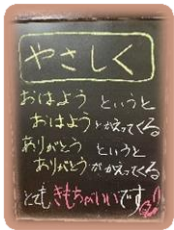 やさしく
おはよう というと
おはよう がかえってくる
ありがとう というと
ありがとう がかえってくる
とても きもちがいいです